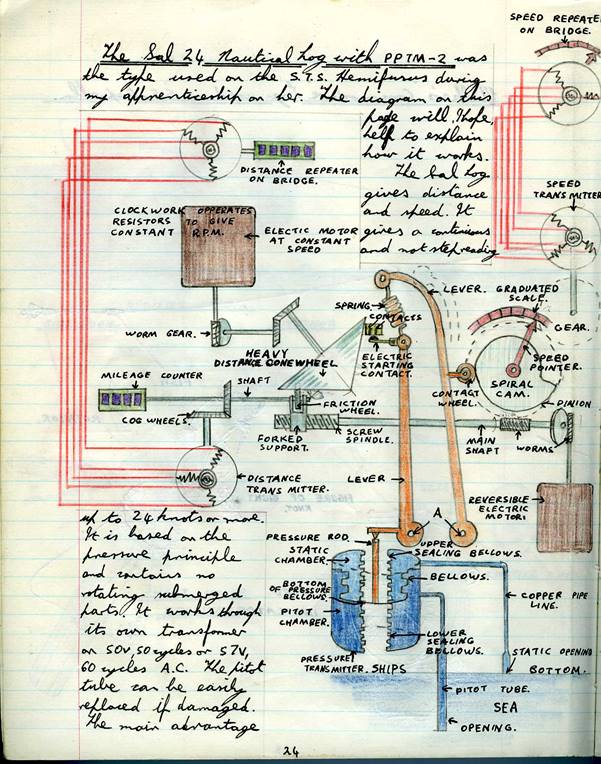 The Sal 24 Nautical Log with PPTM-2 was
the type used on the S.T.S. Hemifusus during
my apprenticeship on her. The diagram on this
page will, I hope,
help to explain
how it works.
The Sal Log
gives distance
and speed. It
gives a continuous
and not step reading
SPEED REPEATE
ON BRIDGE.
SPEED
TRANSMITTER
DISTANCE REPEATER
ON BRIDGE.
CLOCKWORK OPPERATES
RESISTORS TO GIVE
CONSTANT R.P.M.
ELECTIC MOTOR
AT CONSTANT
SPEED
WORM GEAR.
HEAVY
DISTANCE CONEWHEEL
SPRING
CONTACTS
ELECTRIC
STARTING
CONTACT.
LEVER.
GRADUATED
SCALE.
GEAR.
SPEED
POINTER.
SPIRAL
CAM.
CONTACT
WHEEL.
PINION
MILEAGE COUNTER
SHAFT
COG WHEELS.
FRICTION
WHEEL.
FORKED
SUPPORT.
SCREW
SPINDLE.
MAIN
SHAFT
WORMS
DISTANCE
TRANSMITTER.
LEVER
A
REVERSIBLE
ELECTRIC
MOTOR.
up to 24 knots or more.
It is based on the
pressure principle
and contains no
rotating submerged
parts. It works through
its own transfomer
on 50V, 50 cycles or 57V,
60 cycles A.C. The pitot
tube can be easily
replaced if damaged.
The main advantage
PRESSURE ROD.
STATIC
CHAMBER.
BOTTOM
OF PRESSURE
BELLOWS.
PITOT
CHAMBER.
PRESSURE
TRANSMITTER.
UPPER
SEALING BELLOWS.
BELLOWS.
LOWER
SEALING
BELLOWS.
COPPER PIPE
LINE.
STATIC OPENING
SHIPS
BOTTOM.
PITOT TUBE.
SEA
OPENING.
24